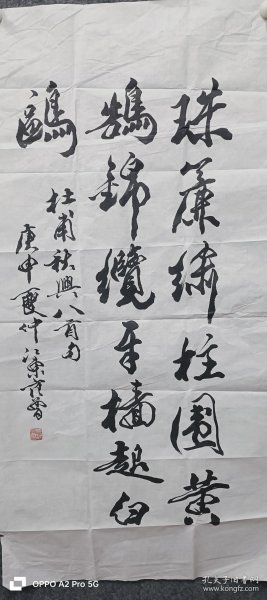 珠簾繡柱圍黄
鵠錦纜牙檣起白
鷗
杜甫秋興八首句
庚申夏仲江東范曾
OPPO A2 Pro 5G
孔夫子旧书网
www.kongfz.com